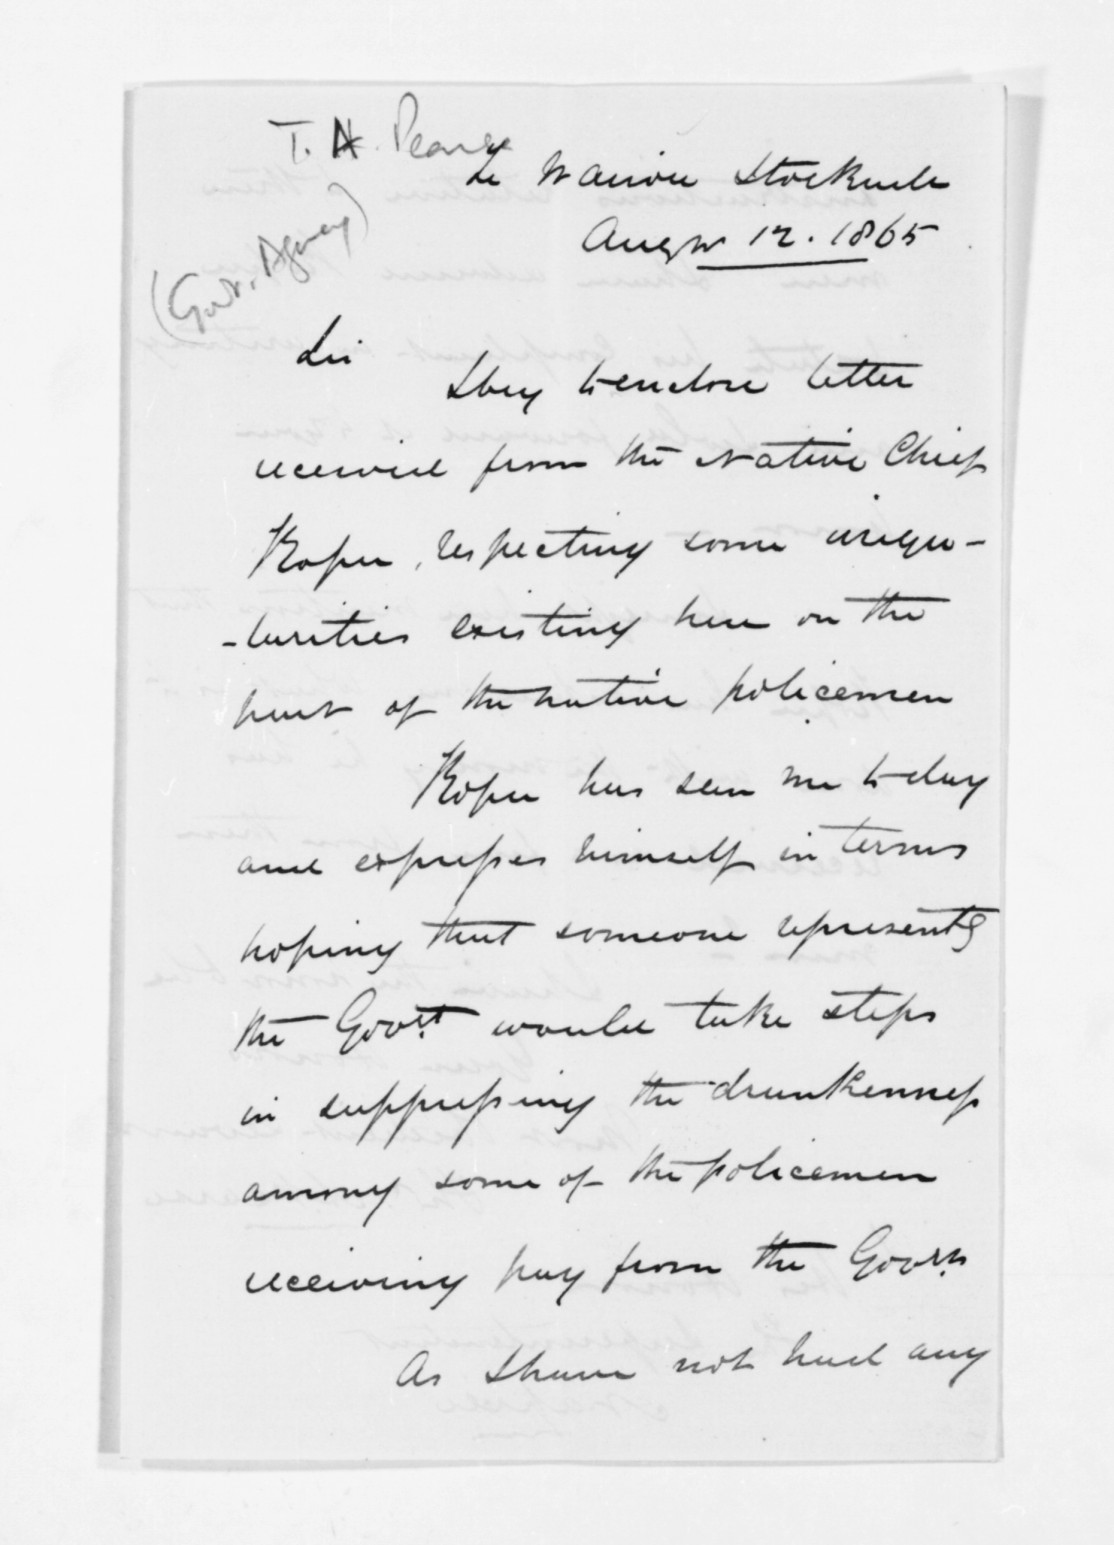 T. H. Pearse
(Govr. Agency)
Te Wairoa Stockade
Augst 12. 1865
Sir
I beg to enclose letter
received from the Native Chief
Kopu, respecting some irregu-
-larities existing here on the
part of the native policemen
Kopu has seen me to day
and expresses himself in terms
hoping that someone representg
the Govt. would take steps
in suppressing the drunkenness
among some of the policemen
receiving pay from the Govt.
As I have not had any